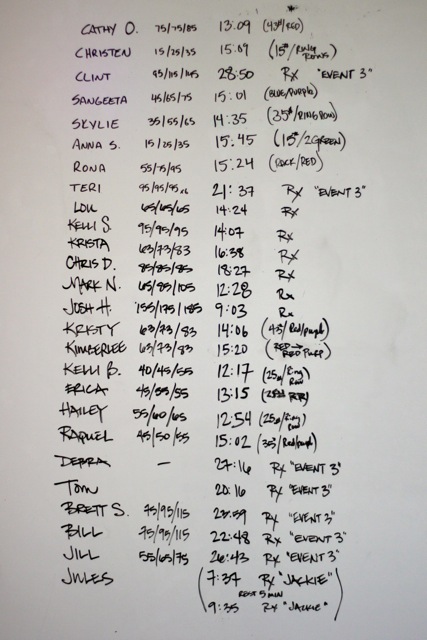 CATHY O. 75/75/85 13:09 (43#/RED)
CHRISTEN 15/25/35 15:09 (15#/RING ROWS)
CLINT 95/115/145 28:50 Rx "EVENT 3"
SANGEETA 45/65/75 15:01 (BLUE/PURPLE)
SKYLIE 35/55/65 14:35 (35#/RING ROW)
ANNA S. 15/25/35 15:45 (15#/2GREEN)
RONA 55/75/95 15:24 (RACK/RED)
TERI 95/95/95 21:37 Rx "EVENT 3"
LOU 65/65/65 14:24 Rx
KELLI S. 95/95/95 14:07 Rx
KRISTA 63/73/83 16:38 Rx
CHRIS D. 85/85/85 18:27 Rx
MARK N. 65/85/105 12:28 Rx
JOSH H. 155/175/185 9:03 Rx
KRISTY 63/73/83 14:06 (43/Red/purple)
KIMBERLEE 63/73/83 15:20 (RED → RED PURP)
KELLI B. 40/45/55 12:17 (25#/Ring Row)
ERICA 45/55/55 13:15 (25# RR)
HAILEY 55/60/65 12:54 (25#/Ring Row)
RAQUEL 45/50/55 15:02 (35/Red/purple)
DEBRA — 27:16 Rx "EVENT 3"
Tom 20:16 Rx "EVENT 3"
BRETT S. 75/95/115 Rx "EVENT 3"
BILL 75/95/115 22:48 Rx "EVENT 3"
JILL 55/65/75 26:43 Rx "EVENT 3"
JULES (7:37 Rx "JACKIE"
REST 5 MIN
9:35 Rx "JACKIE")